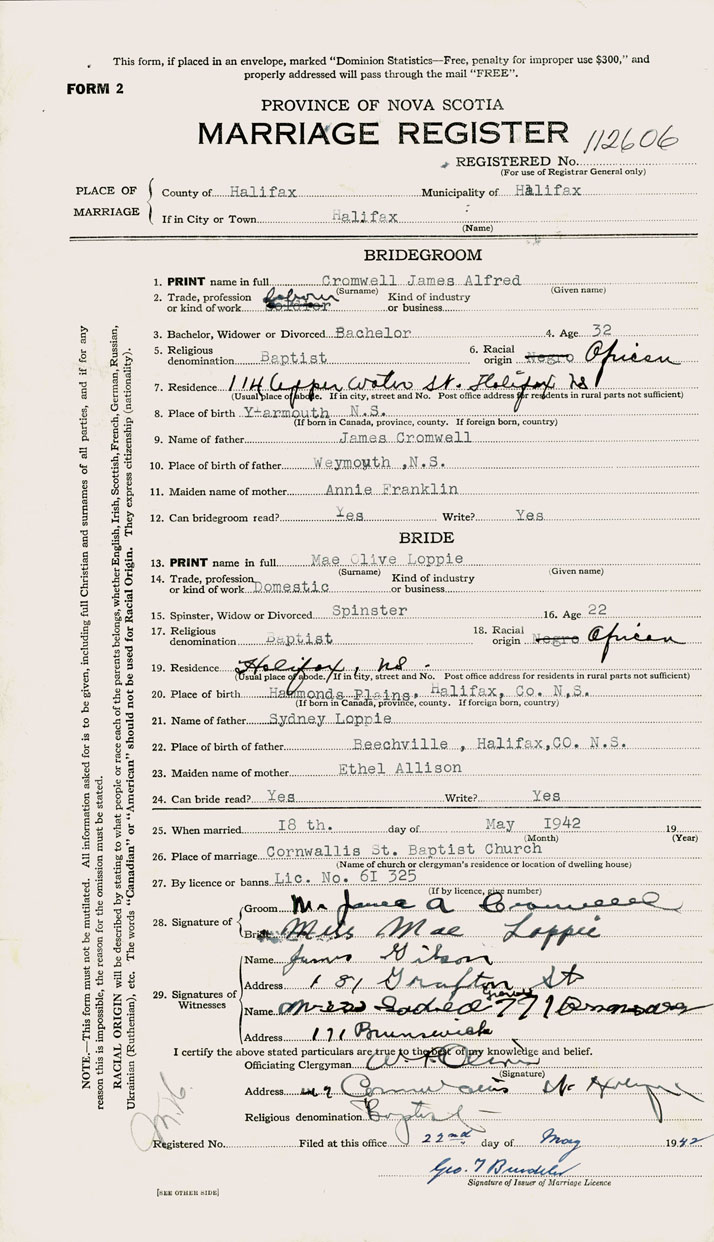 This form, if placed in an envelope, marked "Dominion Statistics—Free, penalty for improper use $300," and
properly addressed will pass through the mail "FREE".
FORM 2
PROVINCE OF NOVA SCOTIA
MARRIAGE REGISTER
112606
REGISTERED No.
(For use of Registrar General only)
PLACE OF MARRIAGE
County of Halifax Municipality of Halifax
If in City or Town Halifax
(Name)
BRIDEGROOM
1. PRINT name in full Cromwell James Alfred
(Surname) (Given name)
2. Trade, profession or kind of work Labour Soldier Kind of industry or business
3. Bachelor, Widower or Divorced Bachelor 4. Age 32
5. Religious denomination Baptist 6. Racial origin Negro African
7. Residence 114 Upper Water St. Halifax NS
(Usual place of abode. If in city, street and No. Post office address for residents in rural parts not sufficient)
8. Place of birth Yarmouth N.S.
(If born in Canada, province, county. If foreign born, country)
9. Name of father James Cromwell
10. Place of birth of father Weymouth ,N.S.
11. Maiden name of mother Annie Franklin
12. Can bridegroom read? Yes Write? Yes
BRIDE
13. PRINT name in full Mae Olive Loppie
(Surname) (Given name)
14. Trade, profession or kind of work Domestic Kind of industry or business
15. Spinster, Widow or Divorced Spinster 16. Age 22
17. Religious denomination Baptist 18. Racial origin Negro African
19. Residence Halifax, NS.
(Usual place of abode. If in city, street and No. Post office address for residents in rural parts not sufficient)
20. Place of birth Hammonds Plains, Halifax, Co. N.S.
(If born in Canada, province, county. If foreign born, country)
21. Name of father Sydney Loppie
22. Place of birth of father Beechville , Halifax,CO. N.S.
23. Maiden name of mother Ethel Allison
24. Can bride read? Yes Write? Yes
25. When married 18 th. day of May 1942 19
(Month) (Year)
26. Place of marriage Cornwallis St. Baptist Church
(Name of church or clergyman's residence or location of dwelling house)
27. By licence or banns Lic. No. 61 325
(If by licence, give number)
28. Signature of
Groom Mr James A Cromwell
Bride Miss Mae Loppie
29. Signatures of Witnesses
Name James Gibson
Address 181 Grafton St
Name
Address 171 Brunswick
I certify the above stated particulars are true to the best of my knowledge and belief.
Officiating Clergyman W. P. Oliver
(Signature)
Address Cornwallis St
Religious denomination Baptist
Registered No. Filed at this office 22nd day of May 1942
Geo. T
Signature of Issuer of Marriage Licence
[SEE OTHER SIDE]
NOTE.—This form must not be mutilated. All information asked for is to be given, including full Christian and surnames of all parties, and if for any
reason this is impossible, the reason for the omission must be stated.
RACIAL ORIGIN will be described by stating to what people or race each of the parents belongs, whether English, Irish, Scottish, French, German, Russian,
Ukrainian (Ruthenian), etc. The words "Canadian" or "American" should not be used for Racial Origin. They express citizenship (nationality).